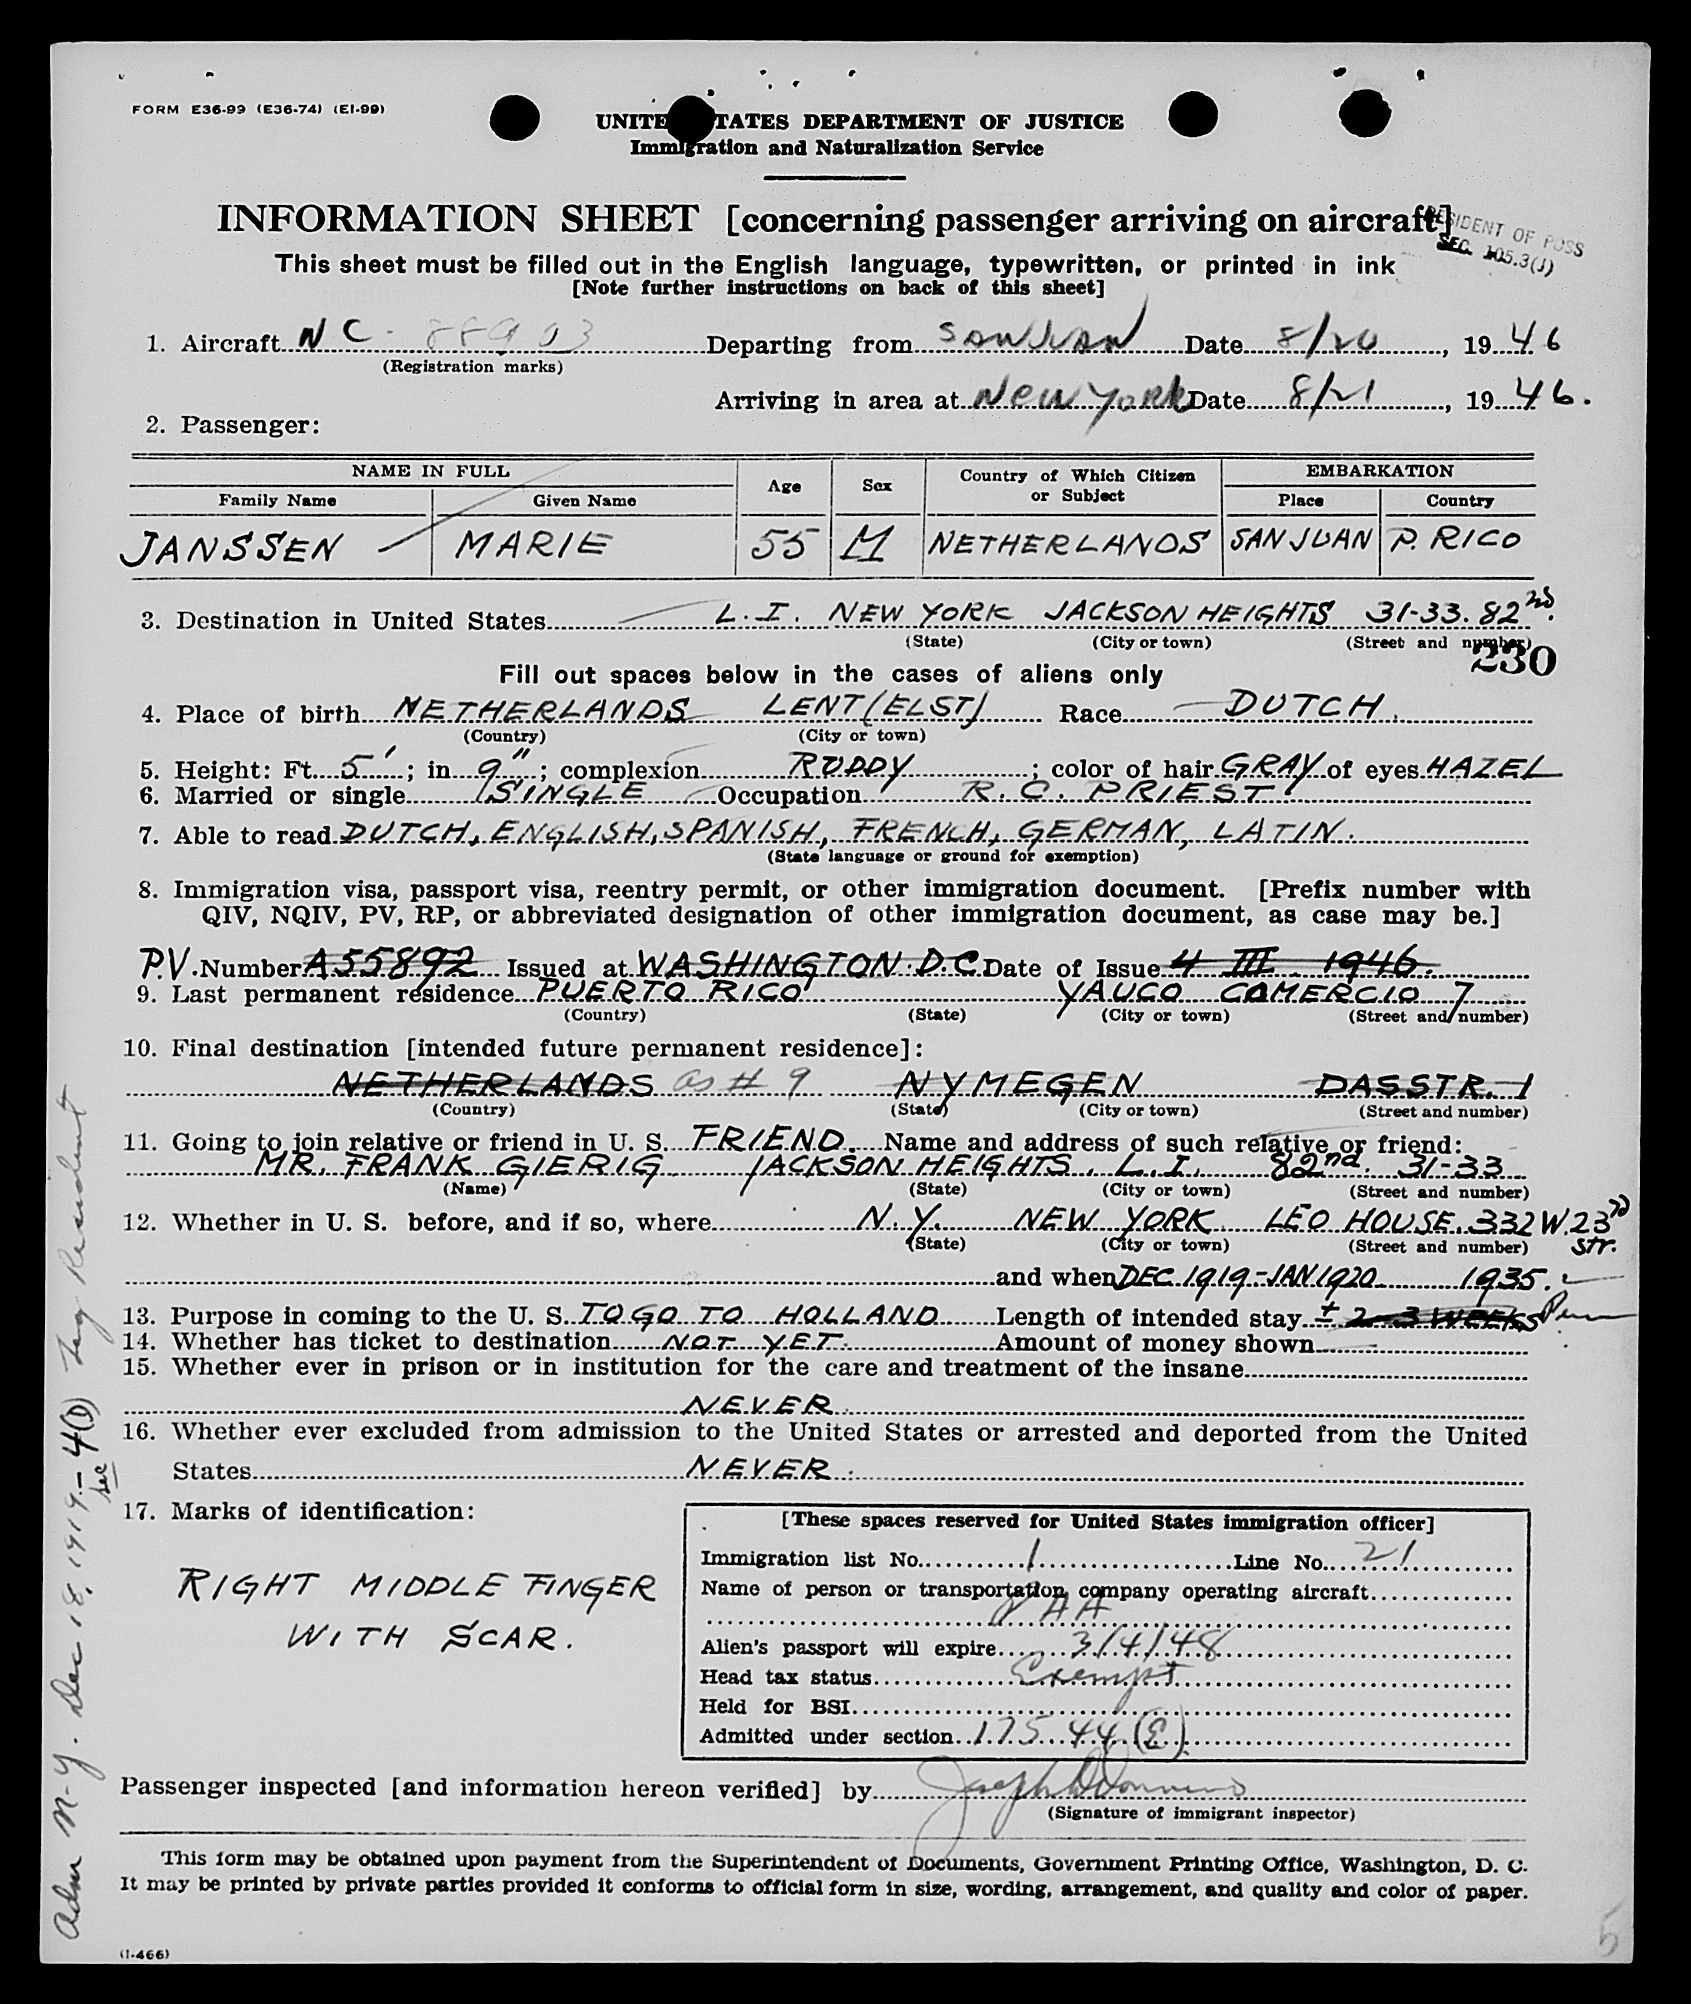 FORM E36-99 (E36-74) (EI-99)
UNITED STATES DEPARTMENT OF JUSTICE
Immigration and Naturalization Service
INFORMATION SHEET [concerning passenger arriving on aircraft]
RESIDENT OF POSS
SEC. 105.3(J)
This sheet must be filled out in the English language, typewritten, or printed in ink
[Note further instructions on back of this sheet]
1. Aircraft NC- 88903 Departing from SAN JUAN Date 8/20, 1946
(Registration marks)
Arriving in area at New York Date 8/21, 1946.
2. Passenger:
NAME IN FULL Age Sex Country of Which Citizen or Subject EMBARKATION
Family Name Given Name Place Country
JANSSEN MARIE 55 M NETHERLANDS SAN JUAN P. RICO
3. Destination in United States L.I. NEW YORK JACKSON HEIGHTS 31-33. 82nd.
(State) (City or town) (Street and number)
230
Fill out spaces below in the cases of aliens only
4. Place of birth NETHERLANDS LENT (ELST) Race DUTCH.
(Country) (City or town)
5. Height: Ft. 5' ; in 9" ; complexion RUDDY ; color of hair GRAY of eyes HAZEL
6. Married or single SINGLE Occupation R.C. PRIEST
7. Able to read DUTCH, ENGLISH, SPANISH, FRENCH, GERMAN, LATIN.
(State language or ground for exemption)
8. Immigration visa, passport visa, reentry permit, or other immigration document. [Prefix number with
QIV, NQIV, PV, RP, or abbreviated designation of other immigration document, as case may be.]
P.V. Number A55892 Issued at WASHINGTON D.C. Date of Issue 4 III 1946.
9. Last permanent residence PUERTO RICO YAUCO COMERCIO 7
(Country) (State) (City or town) (Street and number)
10. Final destination [intended future permanent residence]:
NETHERLANDS as # 9 NYMEGEN DASSTR. 1
(Country) (State) (City or town) (Street and number)
11. Going to join relative or friend in U. S. FRIEND. Name and address of such relative or friend:
MR. FRANK GIERIG JACKSON HEIGHTS. L.I. 82nd. 31-33
(Name) (State) (City or town) (Street and number)
12. Whether in U. S. before, and if so, where N.Y. NEW YORK LEO HOUSE. 332 W. 23rd
(State) (City or town) (Street and number) Str.
and when DEC 1919-JAN 1920 1935.
13. Purpose in coming to the U. S. TO GO TO HOLLAND Length of intended stay ± 2-3 WEEKS Perm
14. Whether has ticket to destination NOT YET. Amount of money shown
15. Whether ever in prison or in institution for the care and treatment of the insane
NEVER
16. Whether ever excluded from admission to the United States or arrested and deported from the United
States NEVER.
17. Marks of identification:
RIGHT MIDDLE FINGER
WITH SCAR.
[These spaces reserved for United States immigration officer]
Immigration list No. 1 Line No. 21
Name of person or transportation company operating aircraft
PAA
Alien's passport will expire 3/4/48
Head tax status Exempt
Held for BSI
Admitted under section 175.44 (E)
Passenger inspected [and information hereon verified] by
(Signature of immigrant inspector)
This form may be obtained upon payment from the Superintendent of Documents, Government Printing Office, Washington, D. C.
It may be printed by private parties provided it conforms to official form in size, wording, arrangement, and quality and color of paper.
(I-466)
5
Adm N-Y. Dec 18, 1919 - Sec 4(D) Leg Resident